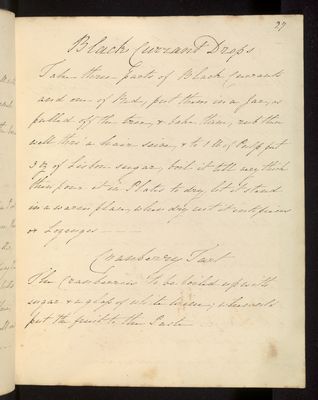 27
Black Currant Drops
Take three parts of Black Currants
and one of Red, put them in a Jar, as
pulled off the tree, & bake them, rub them
well thro' a hair seive, & to 1 lb of Pulp put
of Lisbon sugar, boil it till very thick
then pour it in Plates to dry, let it stand
in a warm place, when dry cut it into pieces
or Lozenges
Cranberry Tart
The Cranberries to be boiled up with
sugar & a glass of white wine; when cold
put the fruit to the Paste